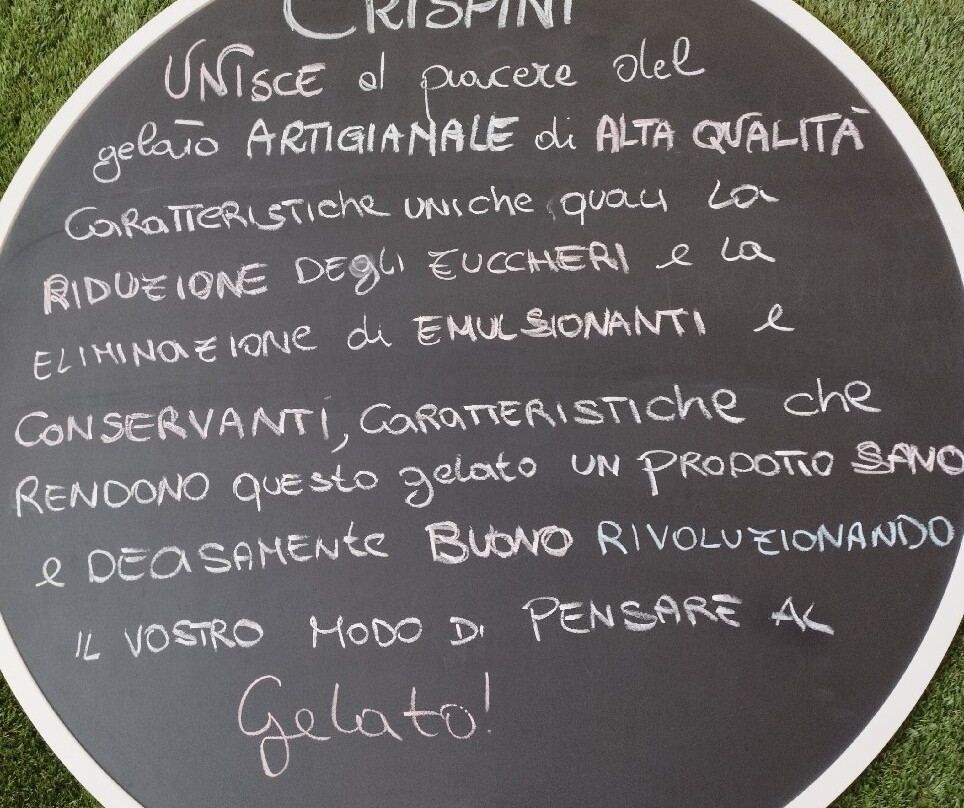 CRISPINI
UNISCE al piacere del
gelato ARTIGIANALE di ALTA QUALITÀ
CARATTERISTICHE UNICHE quali LA
RIDUZIONE DEGLI ZUCCHERI e LA
ELIMINAZIONE di EMULSIONANTI e
CONSERVANTI, CARATTERISTICHE che
RENDONO questo gelato UN PRODOTTO SANO
e DECISAMENTE BUONO RIVOLUZIONANDO
IL VOSTRO MODO DI PENSARE AL
Gelato!